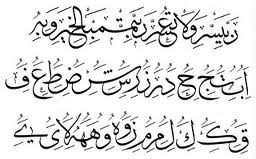 رب يسر ولا تعسر رب تمم بالخير وبه
ا ب ت ج ح د ر ز س ش ص ط ع ف
ق ك ل م ن و ه لا ي